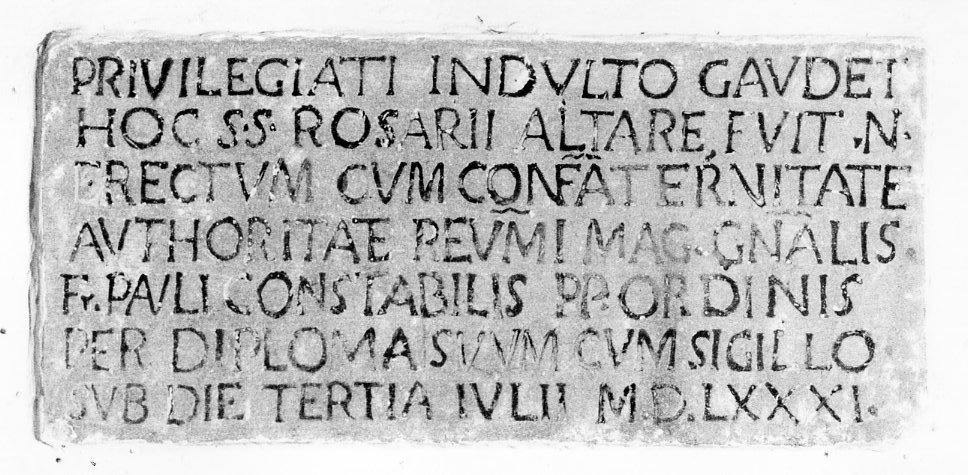 PRIVILEGIATI INDVLTO GAVDET
HOC S·S· ROSARII ALTARE, FVIT .N.
ERECTVM CVM CONFÃTERNITATE
AVTHORITATE REVM̃I MAG. GÑALIS.
Fr. PAVLI CONSTABILIS PP. ORDINIS
PER DIPLOMA SVVM CVM SIGILLO
SVB DIE TERTIA IVLII M.D.LXXXI.